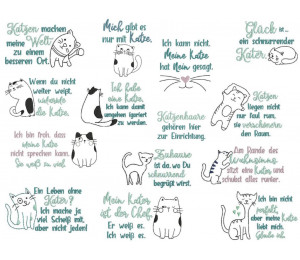 Katzen machen
meine Welt
zu einem
besseren Ort.
Mich gibt es
nur mit Katze.
Ich kann nicht.
Meine Katze
hat Nein gesagt.
Glück ist...
ein schnurrender
Kater.
Wenn du nicht
weiter weißt,
umarme
die Katze.
Ich habe
eine Katze.
Ich kann damit
umgehen ignoriert
zu werden.
Katzenhaare
gehören hier
zur Einrichtung.
Katzen
liegen nicht
nur faul rum,
sie verschönern
den Raum.
Ich bin froh, dass
meine Katze
nicht sprechen kann.
Sie weiß zu viel.
Zuhause
ist da, wo Du
schnurrend
begrüßt wirst.
Am Rande des
Wahnsinns
sitzt eine Katze,
und schubst alles runter.
Ein Leben ohne
Kater?
Ich mache ja
viel Scheiß mit,
aber nicht jeden!
Mein Kater
ist der Chef.
Er weiß es.
Ich weiß es.
Ich bin nicht
aber meine Katze
liebt mich.
Glaube ich.